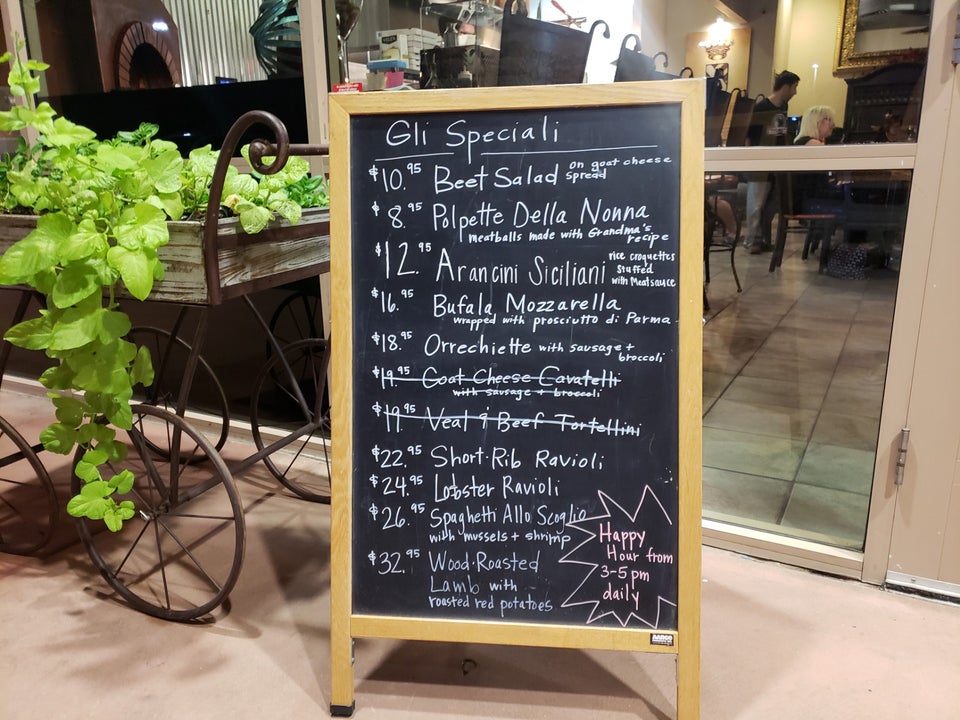 Gli Speciali
$10.95 Beet Salad on goat cheese
spread
$8.95 Polpette Della Nonna
meatballs made with Grandma's
recipe
$12.95 Arancini Siciliani rice croquettes
stuffed
with Meatsauce
$16.95 Bufala Mozzarella
wrapped with prosciutto di Parma
$18.95 Orrechiette with sausage +
broccoli
$19.95 Goat Cheese Cavatelli
with sausage + broccoli
$19.95 Veal & Beef Tortellini
$22.95 Short-Rib Ravioli
$24.95 Lobster Ravioli
$26.95 Spaghetti Allo Scoglio
with mussels + shrimp
$32.95 Wood-Roasted
Lamb with
roasted red potatoes
Happy
Hour from
3-5pm
daily
AARCO